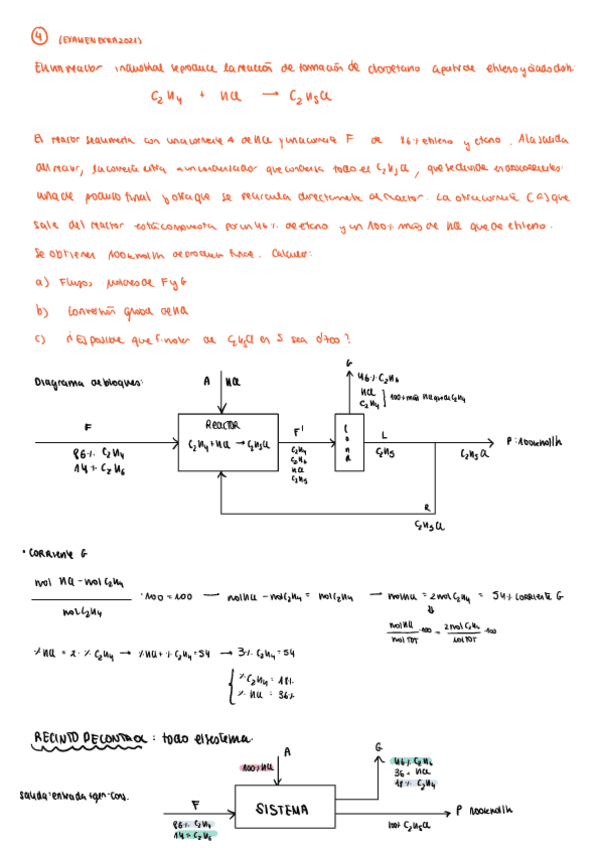 4 (EXAMEN EXTRA 2021)
En un reactor industrial se produce la reacción de formación de cloroetano a partir de etileno y
C2H4 + HCl → C2H5Cl
El reactor se alimenta con una corriente A de HCl y una corriente F de 86% etileno y etano. A la salida
del reactor, la corriente entra a un condensador que condensa todo el C2H5Cl, que se divide en dos corrientes:
una de producto final y otra que se recircula directamente al reactor. La otra corriente (G) que
sale del reactor está compuesta por un 46% de etano y un 100% más de HCl que de etileno.
Se obtienen 100 kmol/h de producto final. Calcular:
a) Flujos molares de F y G
b) Conversión global de HCl
c) ¿Es posible que F. molar de C2H5Cl en S sea 0'700?
Diagrama de bloques:
A HCl
G
46% C2H6
HCl
C2H4
100% más HCl que C2H4
F
86% C2H4
14% C2H6
REACTOR
C2H4 + HCl → C2H5Cl
F'
C2H4
C2H6
HCl
C2H5
COND
L
C2H5
C2H5Cl
P: 100kmol/h
R
C2H5Cl
• CORRIENTE G
mol HCl - mol C2H4
mol C2H4
· 100 = 100 → mol HCl - mol C2H4 = mol C2H4 → mol HCl = 2 mol C2H4 = 54% corriente G
mol HCl / mol TOT · 100 = 2 mol C2H4 / mol TOT · 100
% HCl = 2 · % C2H4 → % HCl + % C2H4 = 54 → 3 % C2H4 = 54
% C2H4 = 18%
% HCl = 36%
RECINTO DE CONTROL: todo el sistema
salida = entrada + gen - cons.
A
100% HCl
G
46% C2H6
36% HCl
18% C2H4
F
86% C2H4
14% C2H6
SISTEMA
P 100kmol/h
100% C2H5Cl